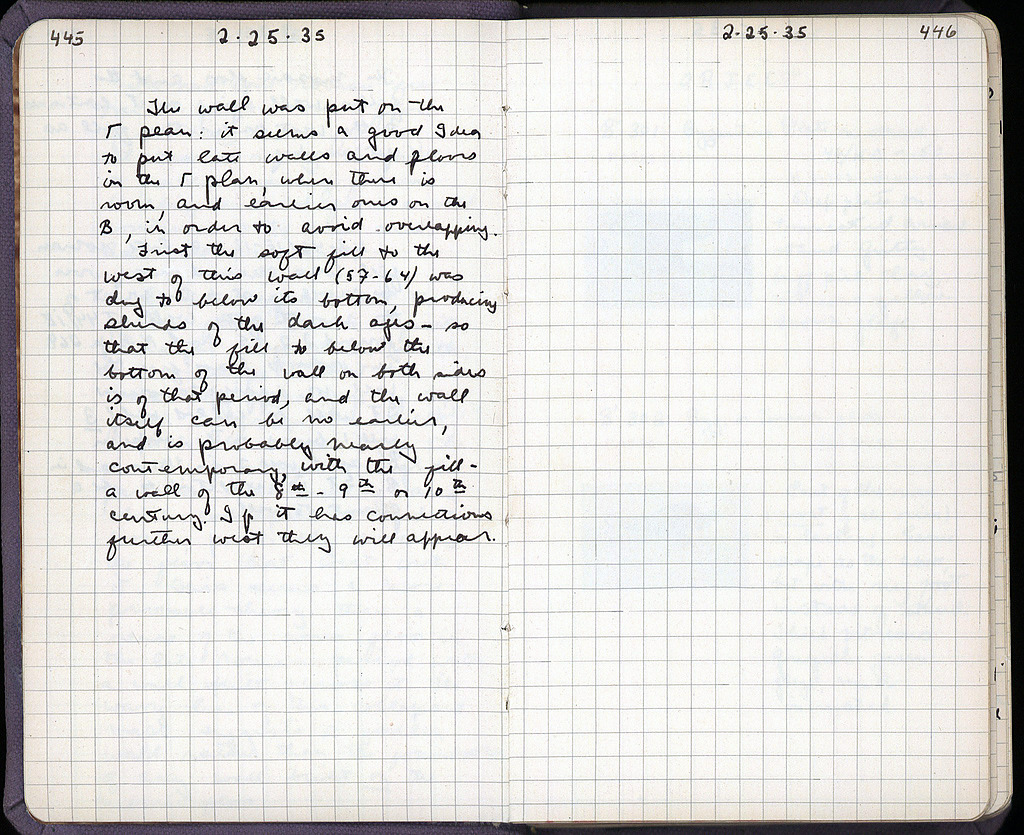 445 2·25·35
The wall was put on the
Γ plan: it seems a good Idea
to put late walls and floors
in the Γ plan, where there is
room, and earlier ones on the
B, in order to avoid overlapping.
First the soft fill to the
west of this wall (57-64) was
dug to below its bottom, producing
sherds of the dark ages - so
that the fill to below the
bottom of the wall on both sides
is of that period, and the wall
itself can be no earlier,
and is probably nearly
contemporary with the fill -
a wall of the 8th - 9th or 10th
century. If it has connections
further west they will appear.
2·25·35 446